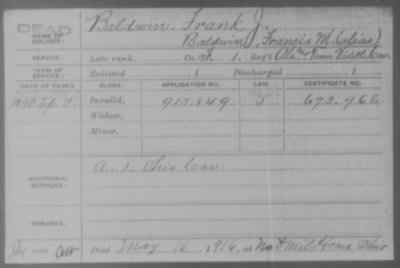 DEAD
NAME OF SOLDIER:
Baldwin, Frank J.
Baldwin, Francis M. (alias)
SERVICE:
Late rank, Co. 1, Reg't
TERM OF SERVICE:
Enlisted , 1 Discharged , 1
DATE OF FILING. CLASS. APPLICATION NO. LAW. CERTIFICATE NO.
1890 Sep. Invalid, 913.849 673.966
Widow,
Minor,
ADDITIONAL SERVICES:
A. 1. Ohio Cav.
REMARKS:
Died May 16, 1916, at Home Ohio